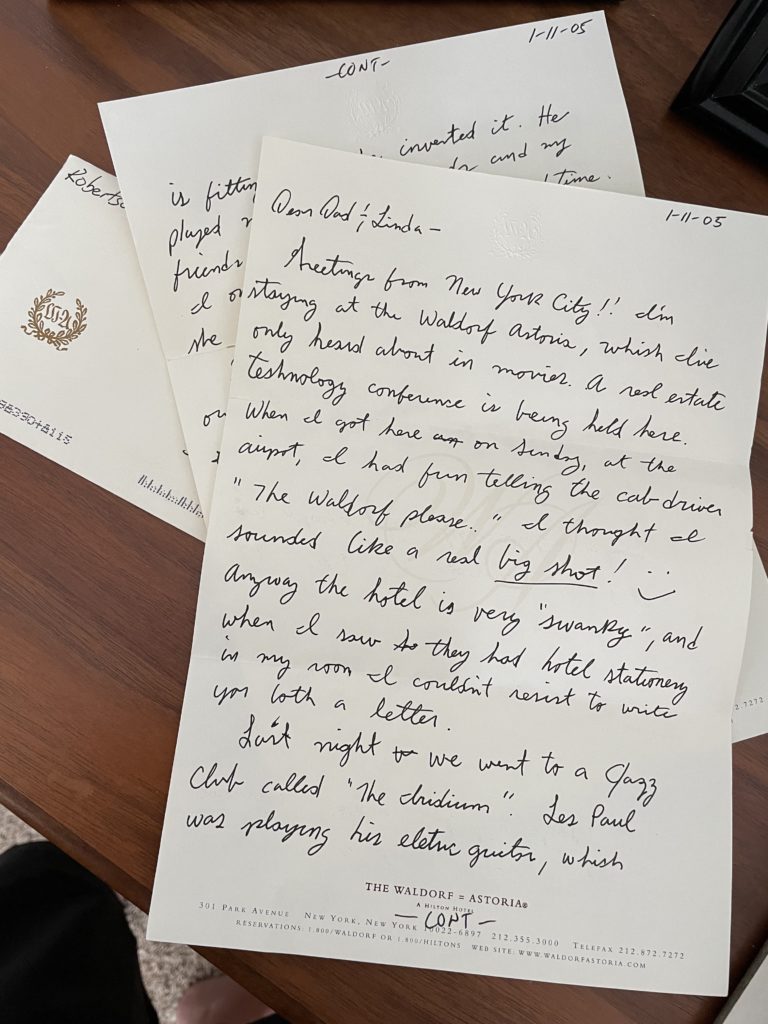 1-11-05
-CONT-
invented it. He
and my
is fitting
time.
played
friends
she
1-11-05
Dear Dad & Linda -
Greetings from New York City!! I'm
staying at the Waldorf Astoria, which I've
only heard about in movies. A real estate
technology conference is being held here.
When I got here on Sunday, at the
airpot, I had fun telling the cab driver
"The Waldorf please.." I thought I
sounded like a real big shot!
Anyway the hotel is very "swanky", and
when I saw they had hotel stationery
in my room I couldn't resist to write
you both a letter.
Last night we went to a Jazz
Club called "The Iridium". Les Paul
was playing his eletric guitar, which
THE WALDORF = ASTORIA®
A HILTON HOTEL
-CONT-
301 PARK AVENUE NEW YORK, NEW YORK 10022-6897 212.355.3000 TELEFAX 212.872.7272
RESERVATIONS: 1.800/WALDORF OR 1.800/HILTONS WEB SITE: WWW.WALDORFASTORIA.COM
2.7272